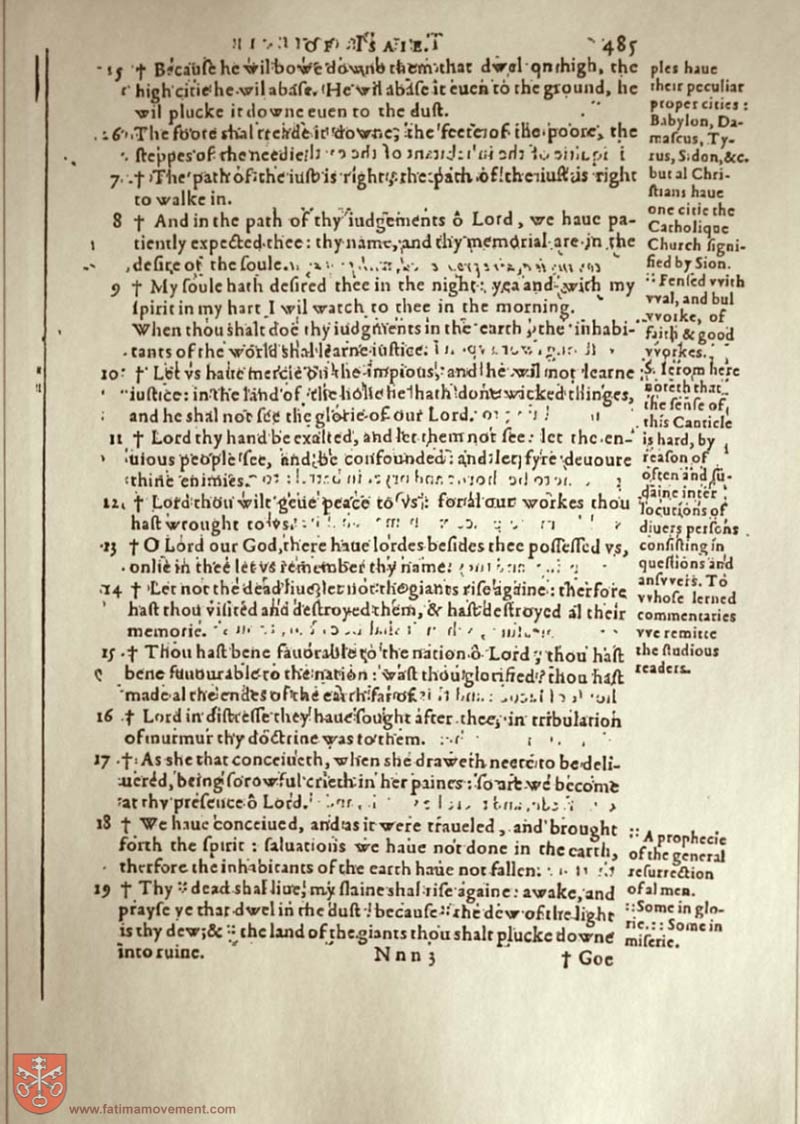 ISAIE. 485
5 † Becauſe he wil bowe downe them that dwel on high, the
high citie he wil abaſe. He wil abaſe it euen to the ground, he
wil plucke it downe euen to the duſt.
6 The foote ſhal treade it downe; the feete of the poore, the
ſteppes of the needie.
7 † The path of the iuſt is right, the path of the iuſt is right
to walke in.
8 † And in the path of thy iudgements ô Lord, we haue pa-
tiently expected thee: thy name, and thy memorial are in the
deſire of the ſoule.
9 † My ſoule hath deſired thee in the night: yea and with my
ſpirit in my hart I wil watch to thee in the morning.
When thou ſhalt doe thy iudgments in the earth, the inhabi-
tants of the world ſhal learne iuſtice.
10 † Let vs haue mercie on the impious, and he wil not learne
iuſtice: in the land of the holie he hath done wicked thinges,
and he ſhal not ſee the glorie of our Lord.
11 † Lord thy hand be exalted, and let them not ſee: let the en-
uious people ſee, and be confounded: and let fyre deuoure
thine enimies.
12 † Lord thou wilt geue peace to vs: for al our workes thou
haſt wrought to vs.
13 † O Lord our God, there haue lordes beſides thee poſſeſſed vs,
onlie in thee let vs remember thy name.
14 † Let not the dead liue, let not the giants riſe againe: therfore
haſt thou viſited and deſtroyed them, & haſt deſtroyed al their
memorie.
15 † Thou haſt bene fauorable to the nation ô Lord, thou haſt
bene fauourable to the nation: waſt thou glorified? thou haſt
made al the endes of the earth far of.
16 † Lord in diſtreſſe they haue ſought after thee, in tribulation
of murmur thy doctrine was to them.
17 † As ſhe that conceiueth, when ſhe draweth neere to be deli-
uered, being ſorowful crieth in her paines: ſo are we become
at thy preſence ô Lord.
18 † We haue conceiued, and as it were traueled, and brought
forth the ſpirit: ſaluations we haue not done in the earth,
therfore the inhabitants of the earth haue not fallen.
19 † Thy :: dead ſhal liue, my ſlaine ſhal riſe againe: awake, and
prayſe ye that dwel in the duſt: becauſe :: the dew of the light
is thy dew; & :: the land of the giants thou ſhalt plucke downe
into ruine.
Nnn 3 † Goe
ples haue
their peculiar
proper cities:
Babylon, Da-
maſcus, Ty-
rus, Sidon, &c.
but al Chri-
ſtians haue
one citie the
Catholique
Church ſigni-
fied by Sion.
:: Fenſed vvith
vval, and bul
vvorke, of
faith & good
vvorkes.
S. Ierom here
noteth that
the ſenſe of
this Canticle
is hard, by
reaſon of
often and ſu-
daine inter
locutions of
diuers perſons
conſiſting in
queſtions and
anſvvers. To
vvhoſe lerned
commentaries
vve remitte
the ſtudious
readers.
:: A prophecie
of the general
reſurrection
of al men.
:: Some in glo-
rie. :: Some in
miſerie.
www.fatimamovement.com